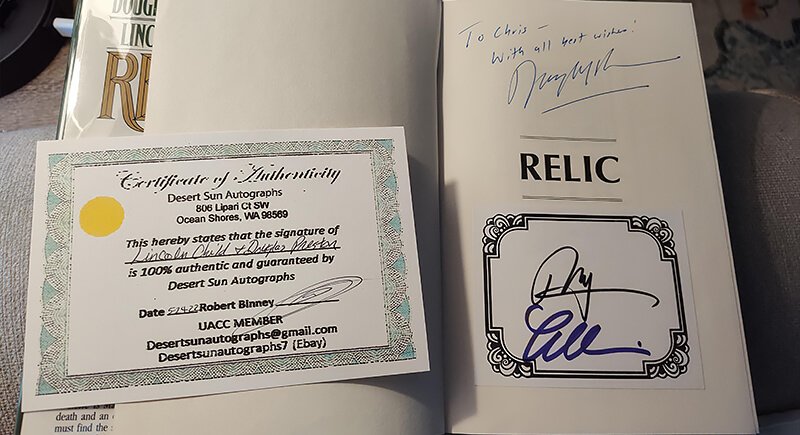 DOUG
LINC
RE
To Chris –
With all best wishes!
RELIC
Certificate of Authenticity
Desert Sun Autographs
806 Lipari Ct SW
Ocean Shores, WA 98569
This hereby states that the signature of
Lincoln Child & Douglas Preston
is 100% authentic and guaranteed by
Desert Sun Autographs
Date Robert Binney
UACC MEMBER
Desertsunautographs@gmail.com
Desertsunautographs7 (Ebay)
death and an
must find the